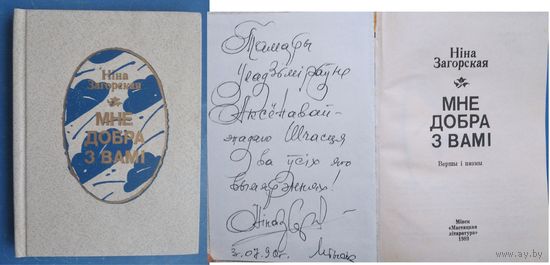 Ніна
Загорская
МНЕ
ДОБРА
З ВАМІ
Тамары
Уладзіміраўне
Аксёнавай –
жадаю Шчасця
ва ўсіх яго
вымярэннях!
Ніна
Мінск
Ніна
Загорская
МНЕ
ДОБРА
З ВАМІ
Вершы і паэмы
Мінск
«Мастацкая
літаратура»
1989
www.ay.by